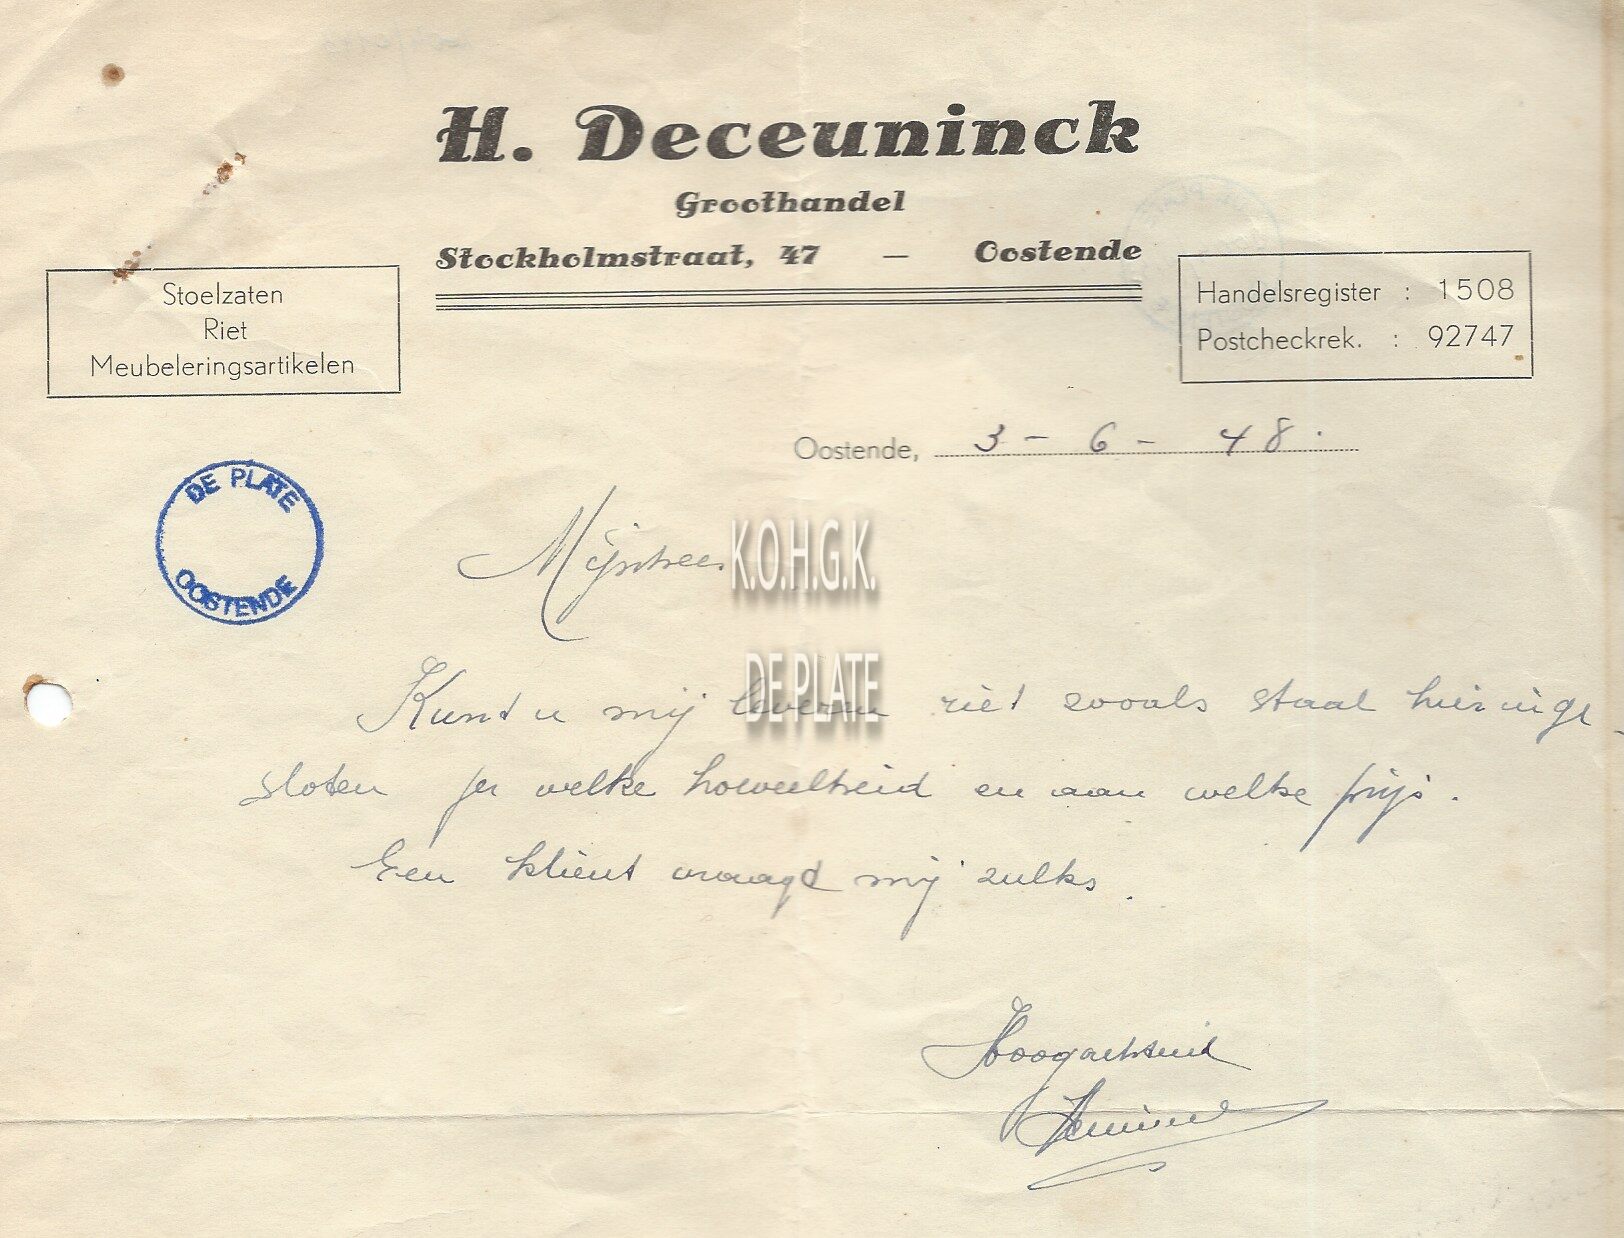 H. Deceuninck
Groothandel
Stockholmstraat, 47 — Oostende
Stoelzaten
Riet
Meubeleringsartikelen
Handelsregister : 1508
Postcheckrek. : 92747
Oostende, 3 - 6 - 48.
DE PLATE
OOSTENDE
Mijnheer
K.O.H.G.K.
DE PLATE
Kunt u mij leveren riet zooals staal hieringe-
sloten per welke hoeveelheid en aan welke prijs.
Een klient vraagd mij zulks.
Hoogachtend